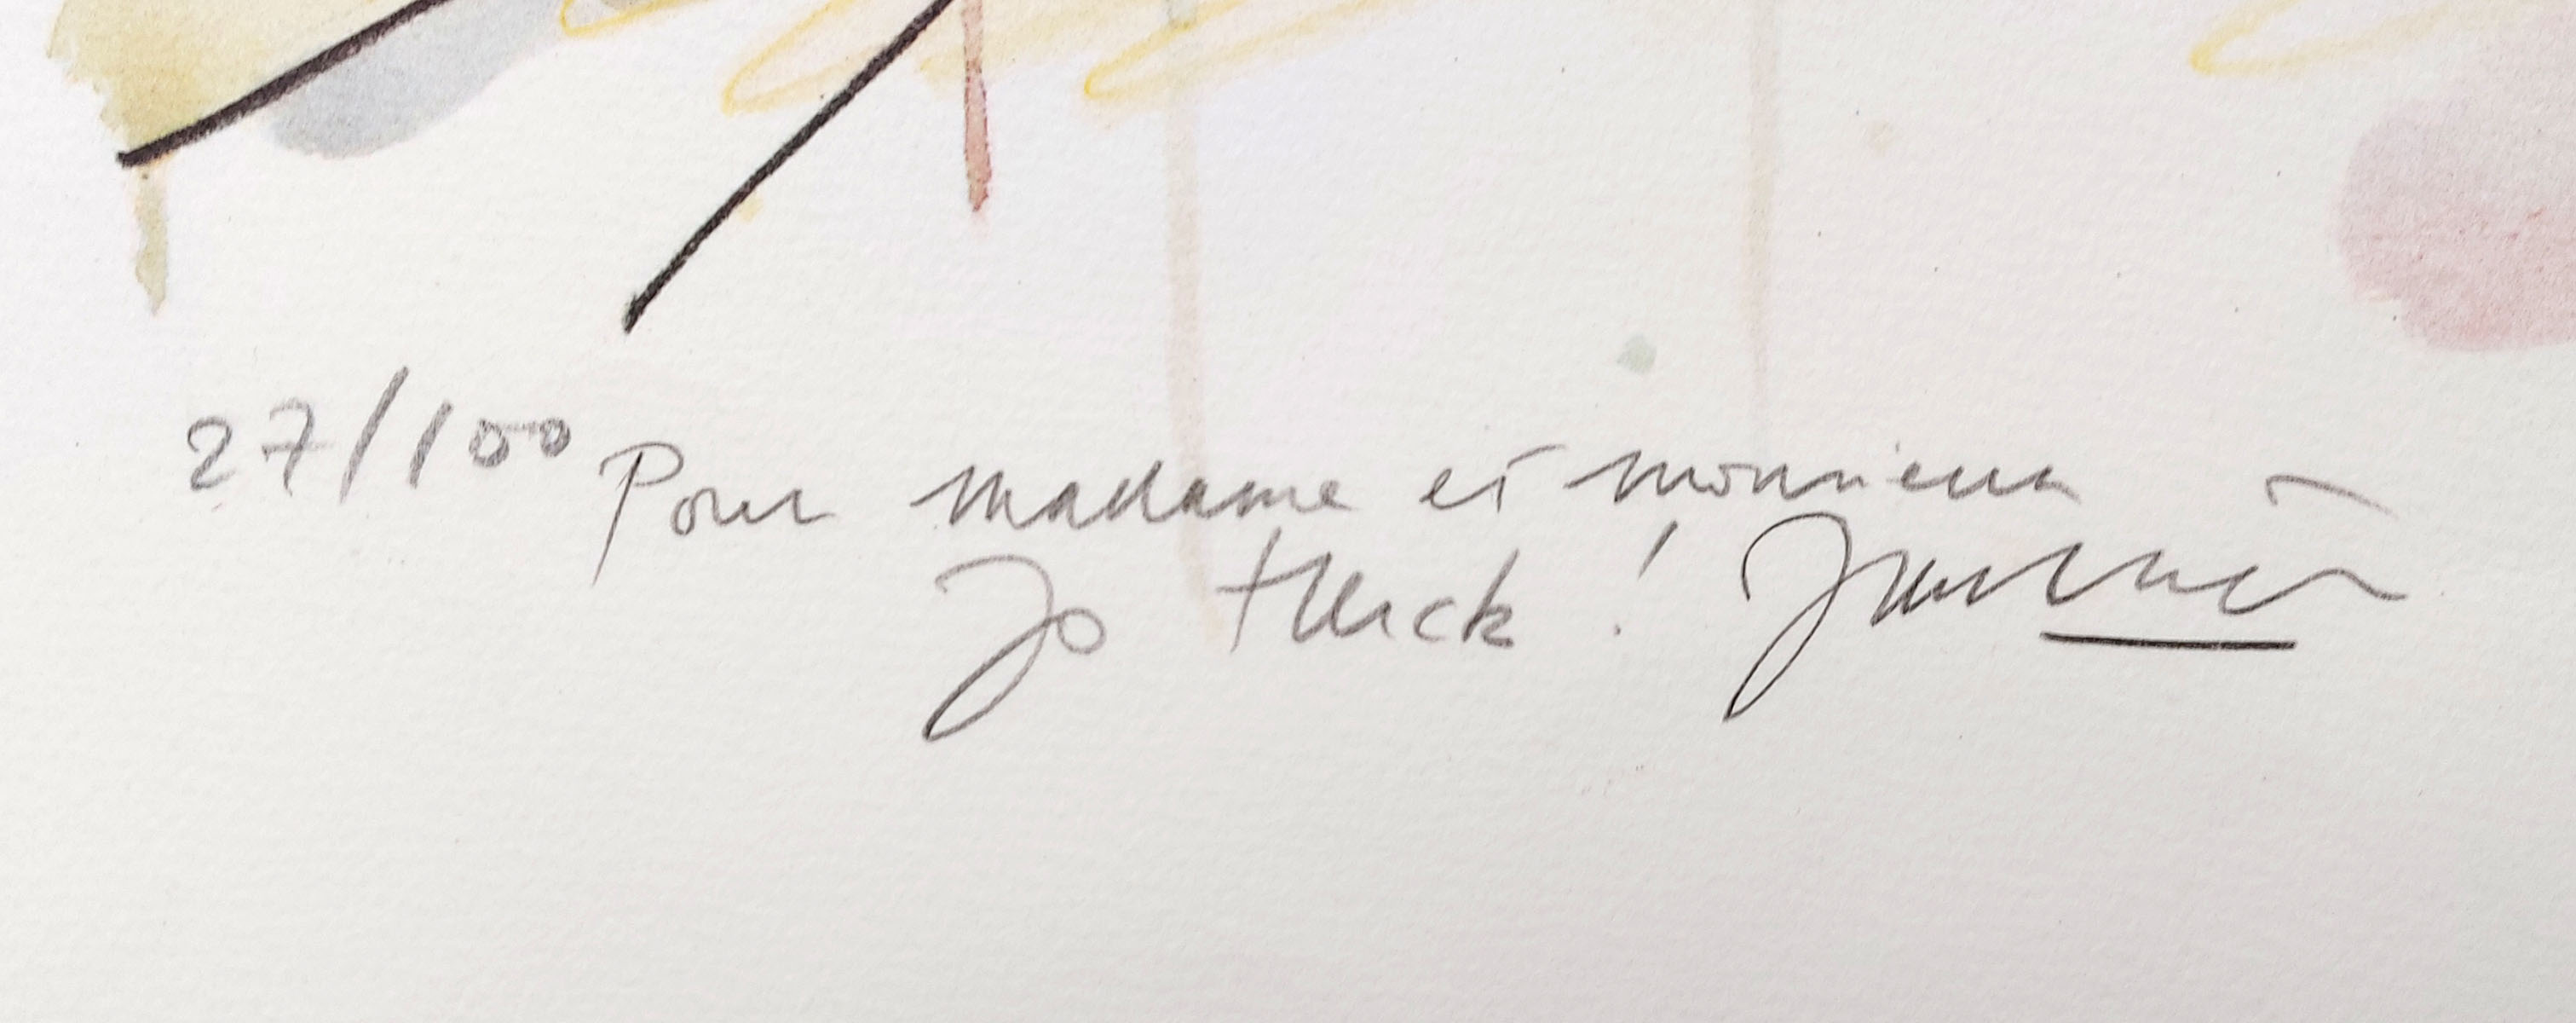 27/100 Pour madame et monsieur
Jo !